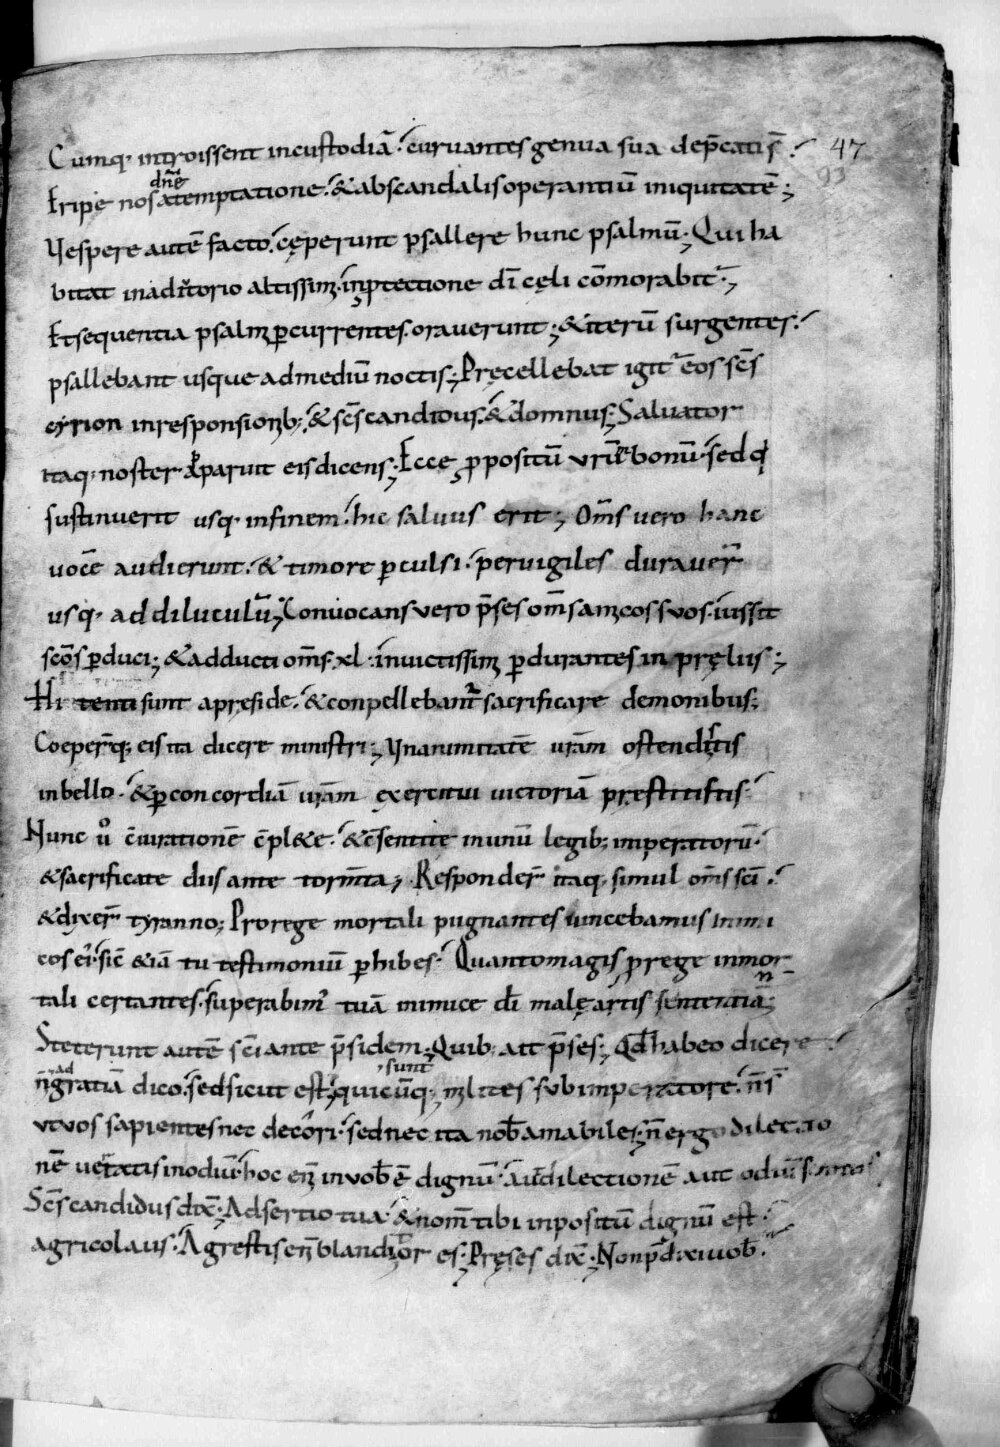 Cumq· introissent incustodiā· curuantes genua sua dep̄cati s̄· 47
93
dn̄e
Eripe nos atemptatione· &abscandalis operantiū iniquitatē;
Vespere autē facto· cęperunt psallere hunc psalmū; Qui ha
bitat inadiutorio altissimi· inprotectione dī cęli cōmorabit᷑;
Etsequentia psalmi p̱currentes· orauerunt; &iterū surgentes·
psallebant usque admediū noctis; Pręcellebat igit᷑ eos sc̄s
cyrion inresponsionib; &sc̄s candidus· & domnus; Saluator
itaq· noster apparuit eis dicens; Ecce ꝓpositū ur̄m bonū· sed q̇
sustinuerit usq· infinem· hic saluus erit; Om̄s uero hanc
uocē audierunt· & timore p̱culsi· peruigiles durauer̄
usq· addiluculū; Conuocans uero p̄ses om̄s amicos suos· iussit
sc̄os p̱duci; &adducti om̄s· xl· inuictissimi p̱durantes in pręliis;
Hi tenti sunt apręside· &conpellebant᷑ sacrificare demonibus;
Coeper̄q; eis ita dicere ministri; Vnanimitatē ur̄am ostendistis
inbello· &p̱concordiā ur̄am exercitui uictoriā prestitistis·
Nunc ů c̄murationē c̄pl&e· &c̄sentite inunū legib; imperatorū·
&sacrificate diis ante torm̄ta; Responder̄ itaq· simul om̄s sc̄i·
&dixer̄ tyranno; Prorege mortali pugnantes uincebamus inimi
cos ei᷒· sic̄ &iā tu testimoniū p̱hibes· Quantomagis ꝓrege inmor
tali certantes· superabim᷒ tuā inimice dī malę artis sententiā;
Steterunt autē sc̄i ante p̄sidem; Quib; ait p̄ses; Qd̄ habeo dicere·
ad sunt
n̄ gratiā dico· sedsicut est; quicūq; milites sub imperatore· n̄ s̄
ut uos sapientes nec decori· sednec ita nob̄ amabiles; n̄ ergo dilectio
nē uertatis inodiū· hoc eni inuob̄ ē dignū· aut dilectionē aut odiū
Sc̄s candidus dix̄; Adsertio tua· &nom̄ tibi inpositū dignū est·
agricolaus· Agrestis eni blandior es; Pręses dix̄; Non p̄dixi uob̄·